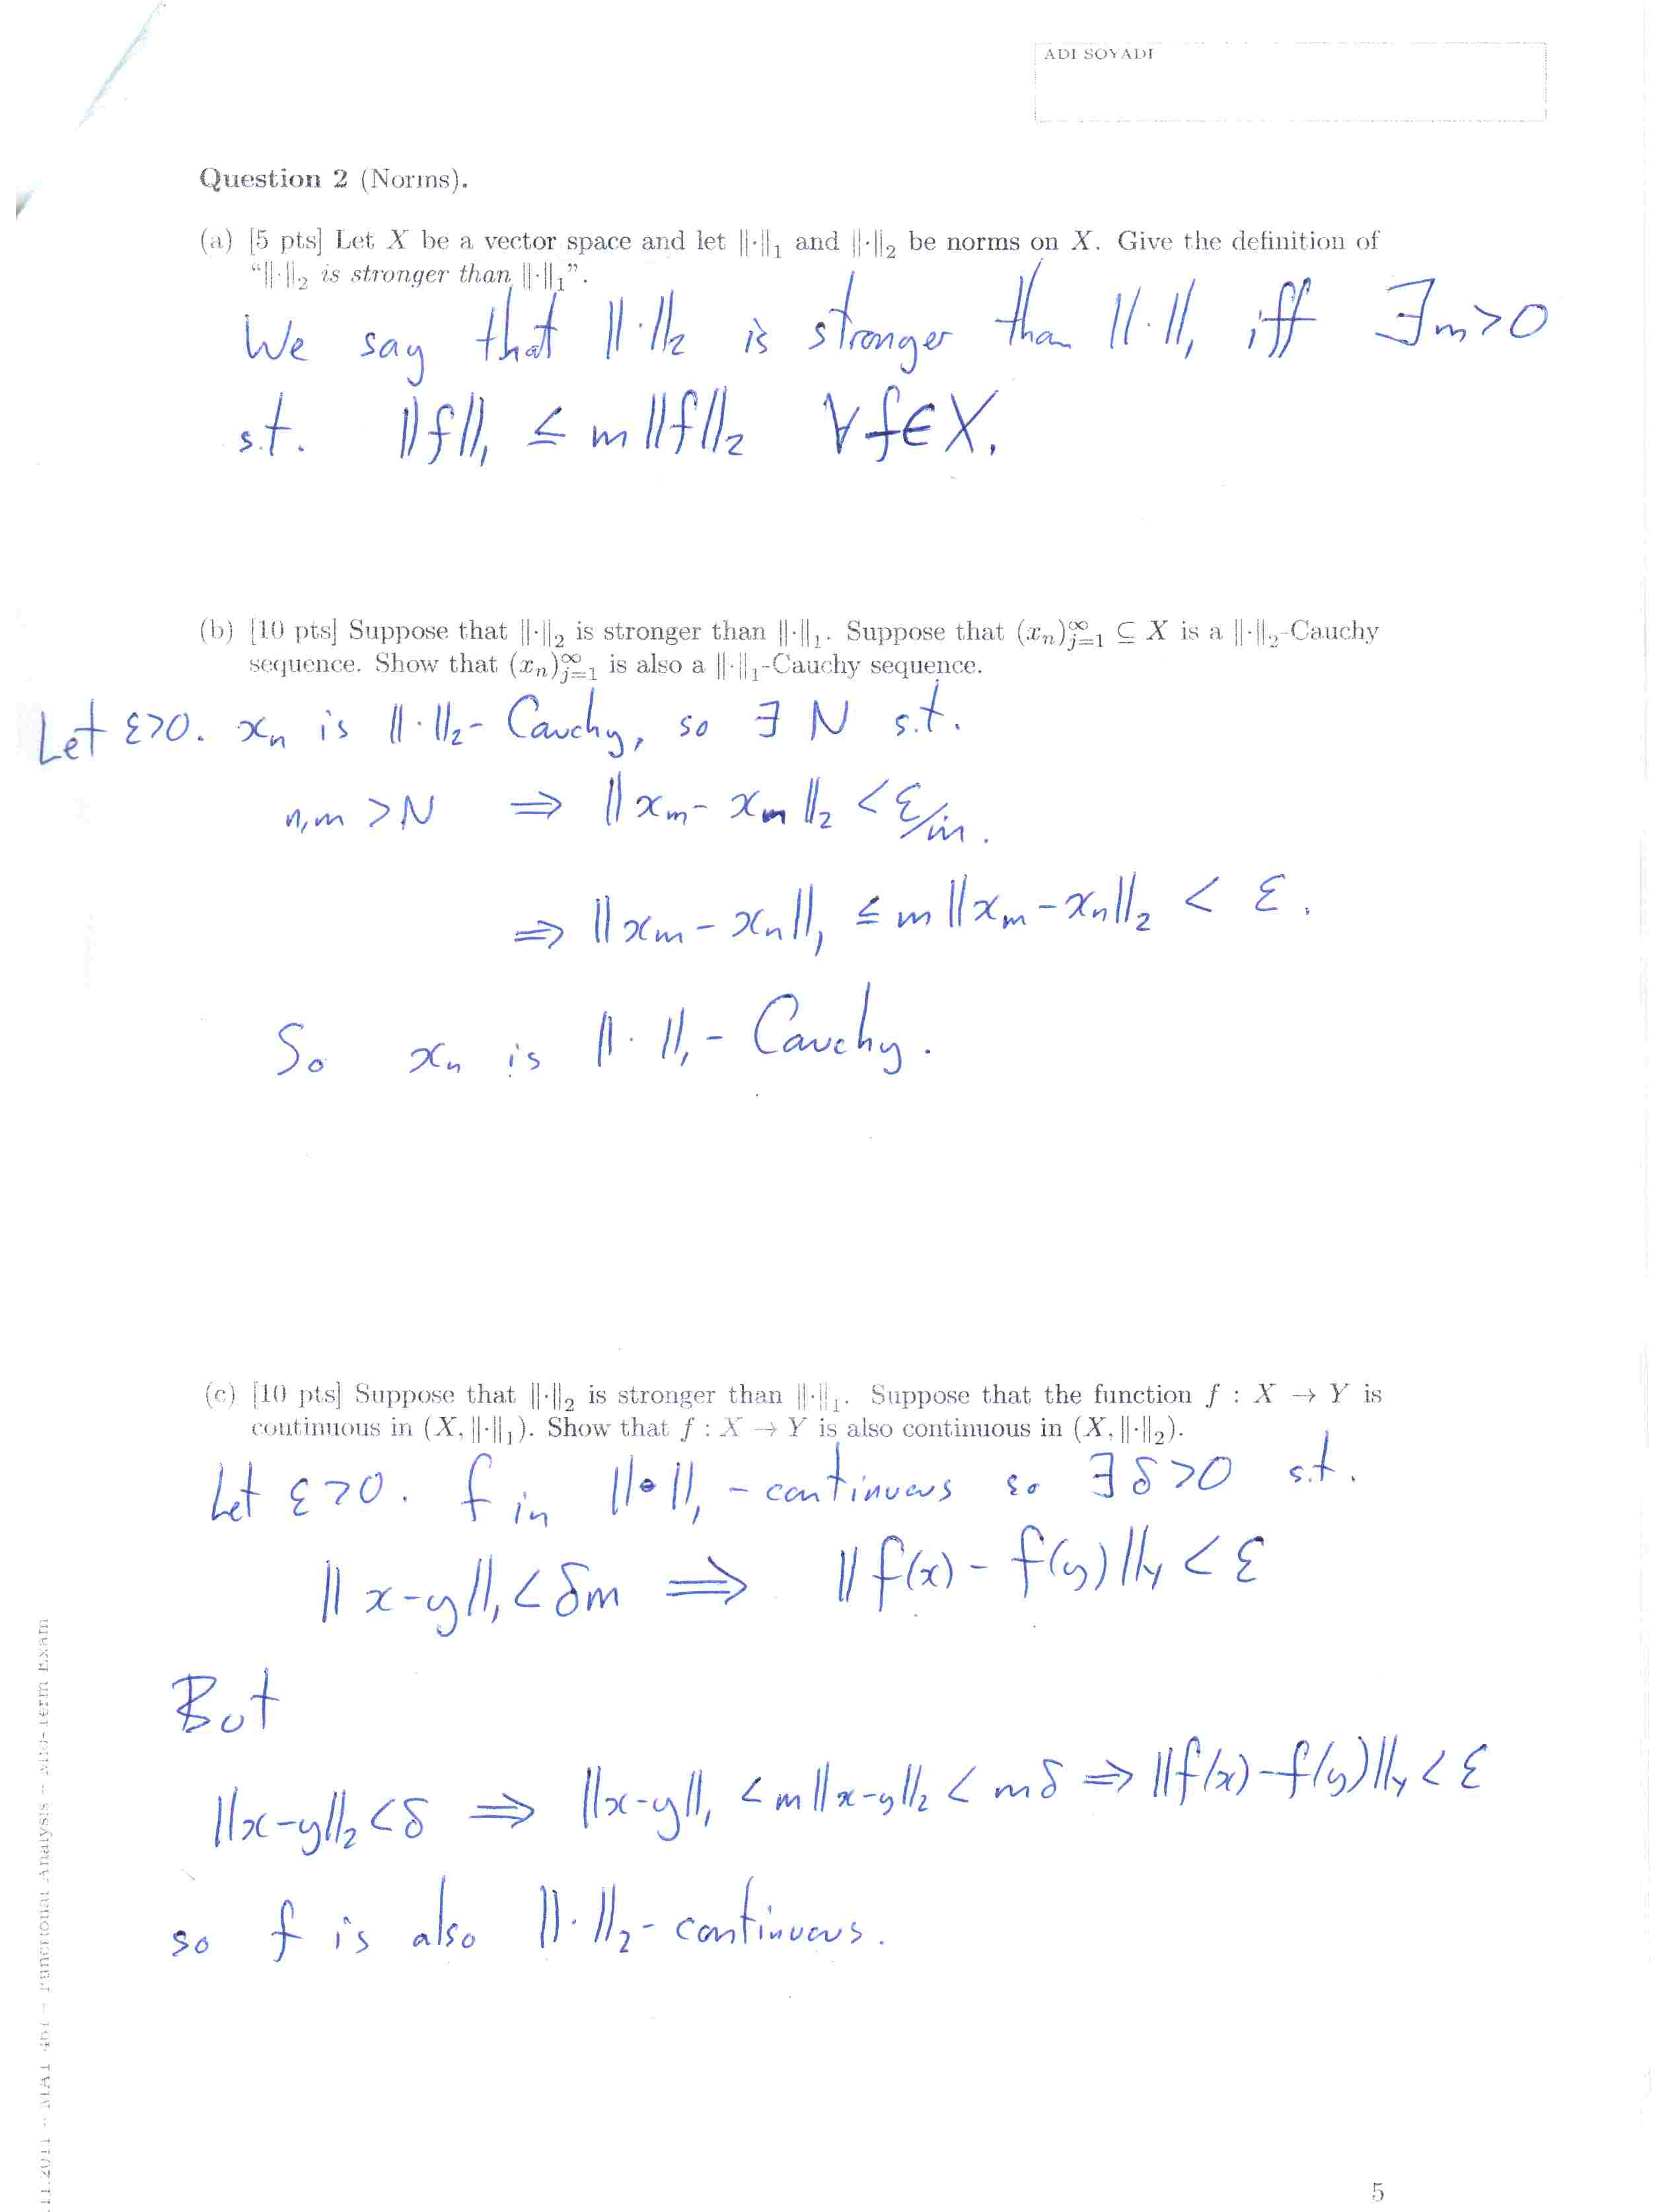 ADI SOYADI
Question 2 (Norms).
(a) [5 pts] Let X be a vector space and let ‖·‖₁ and ‖·‖₂ be norms on X. Give the definition of
“‖·‖₂ is stronger than ‖·‖₁”.
We say that ‖·‖₂ is stronger than ‖·‖₁ iff ∃m>0
s.t. ‖f‖₁ ≤ m‖f‖₂ ∀f∈X.
(b) [10 pts] Suppose that ‖·‖₂ is stronger than ‖·‖₁. Suppose that (xₙ)_{j=1}^∞ ⊆ X is a ‖·‖₂-Cauchy
sequence. Show that (xₙ)_{j=1}^∞ is also a ‖·‖₁-Cauchy sequence.
Let ε>0. xₙ is ‖·‖₂-Cauchy, so ∃ N s.t.
n,m >N ⇒ ‖xₘ- xₘ‖₂ < ε/m.
⇒ ‖xₘ - xₙ‖₁ ≤ m‖xₘ-xₙ‖₂ < ε.
So xₙ is ‖·‖₁-Cauchy.
(c) [10 pts] Suppose that ‖·‖₂ is stronger than ‖·‖₁. Suppose that the function f : X → Y is
continuous in (X, ‖·‖₁). Show that f : X → Y is also continuous in (X, ‖·‖₂).
Let ε>0. f in ‖·‖₁-continuous so ∃ δ>0 s.t.
‖x-y‖₁ < δm ⇒ ‖f(x)- f(y)‖_Y < ε
But
‖x-y‖₂ < δ ⇒ ‖x-y‖₁ < m‖x-y‖₂ < mδ ⇒ ‖f(x)-f(y)‖_Y < ε
so f is also ‖·‖₂-continuous.
11.2011 – MAT 461 – Functional Analysis – Mid-Term Exam
5